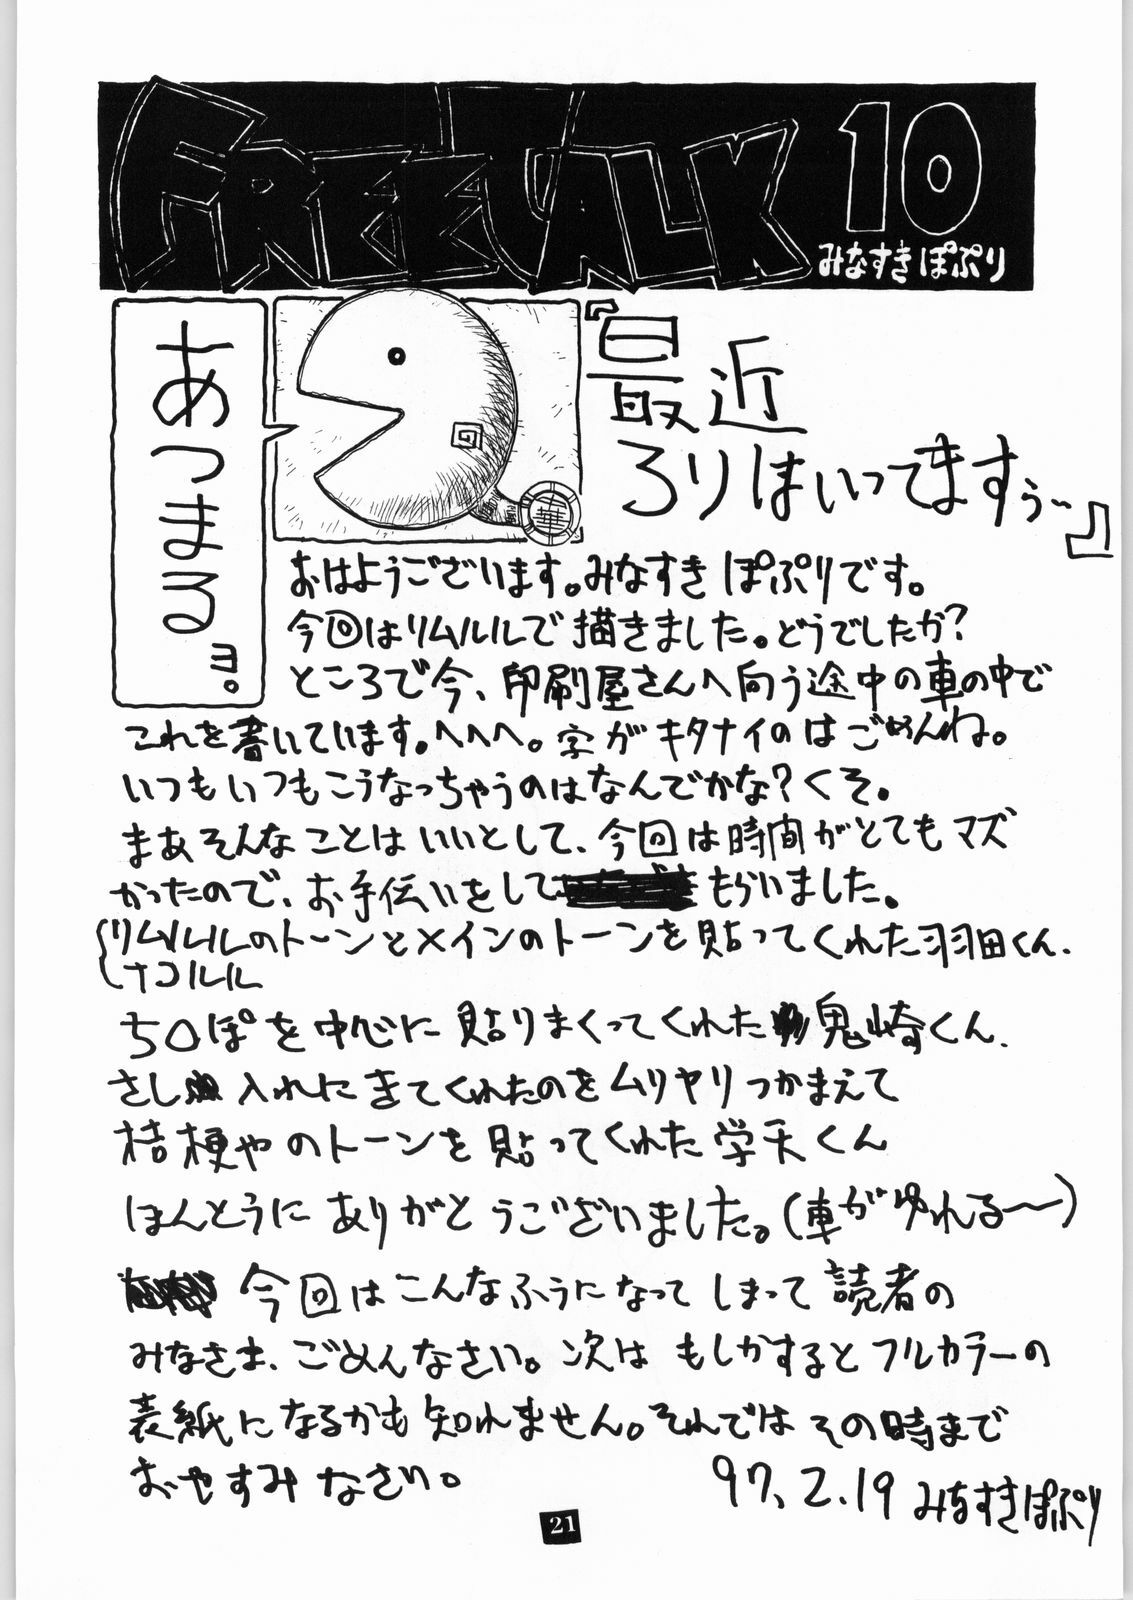 FREE TALK 10
みなすきぽぷり
あつまるヨ。
回
華
『最近
ろりはいってますぅ〜』
おはようございます。みなすき ぽぷりです。
今回はリムルルで描きました。どうでしたか?
ところで今、印刷屋さんへ向う途中の車の中で
これを書いています。へへへ。字がキタナイのはごめんね。
いつもいつもこうなっちゃうのはなんでかな?くそ。
まあそんなことはいいとして、今回は時間がとてもマズ
かったので、お手伝いをして もらいました。
リムルルのトーンとメインのトーンを貼ってくれた羽田くん、
ナコルル
ち○ぽを中心に貼りまくってくれた 鬼崎くん、
さし 入れにきてくれたのをムリヤリつかまえて
桔梗やのトーンを貼ってくれた学天くん
ほんとうにありがとうございました。(車がゆれる〜)
今回はこんなふうになってしまって読者の
みなさま、ごめんなさい。次はもしかするとフルカラーの
表紙になるかも知れません。それではその時まで
おやすみなさい。
97.2.19 みなすきぽぷり
21